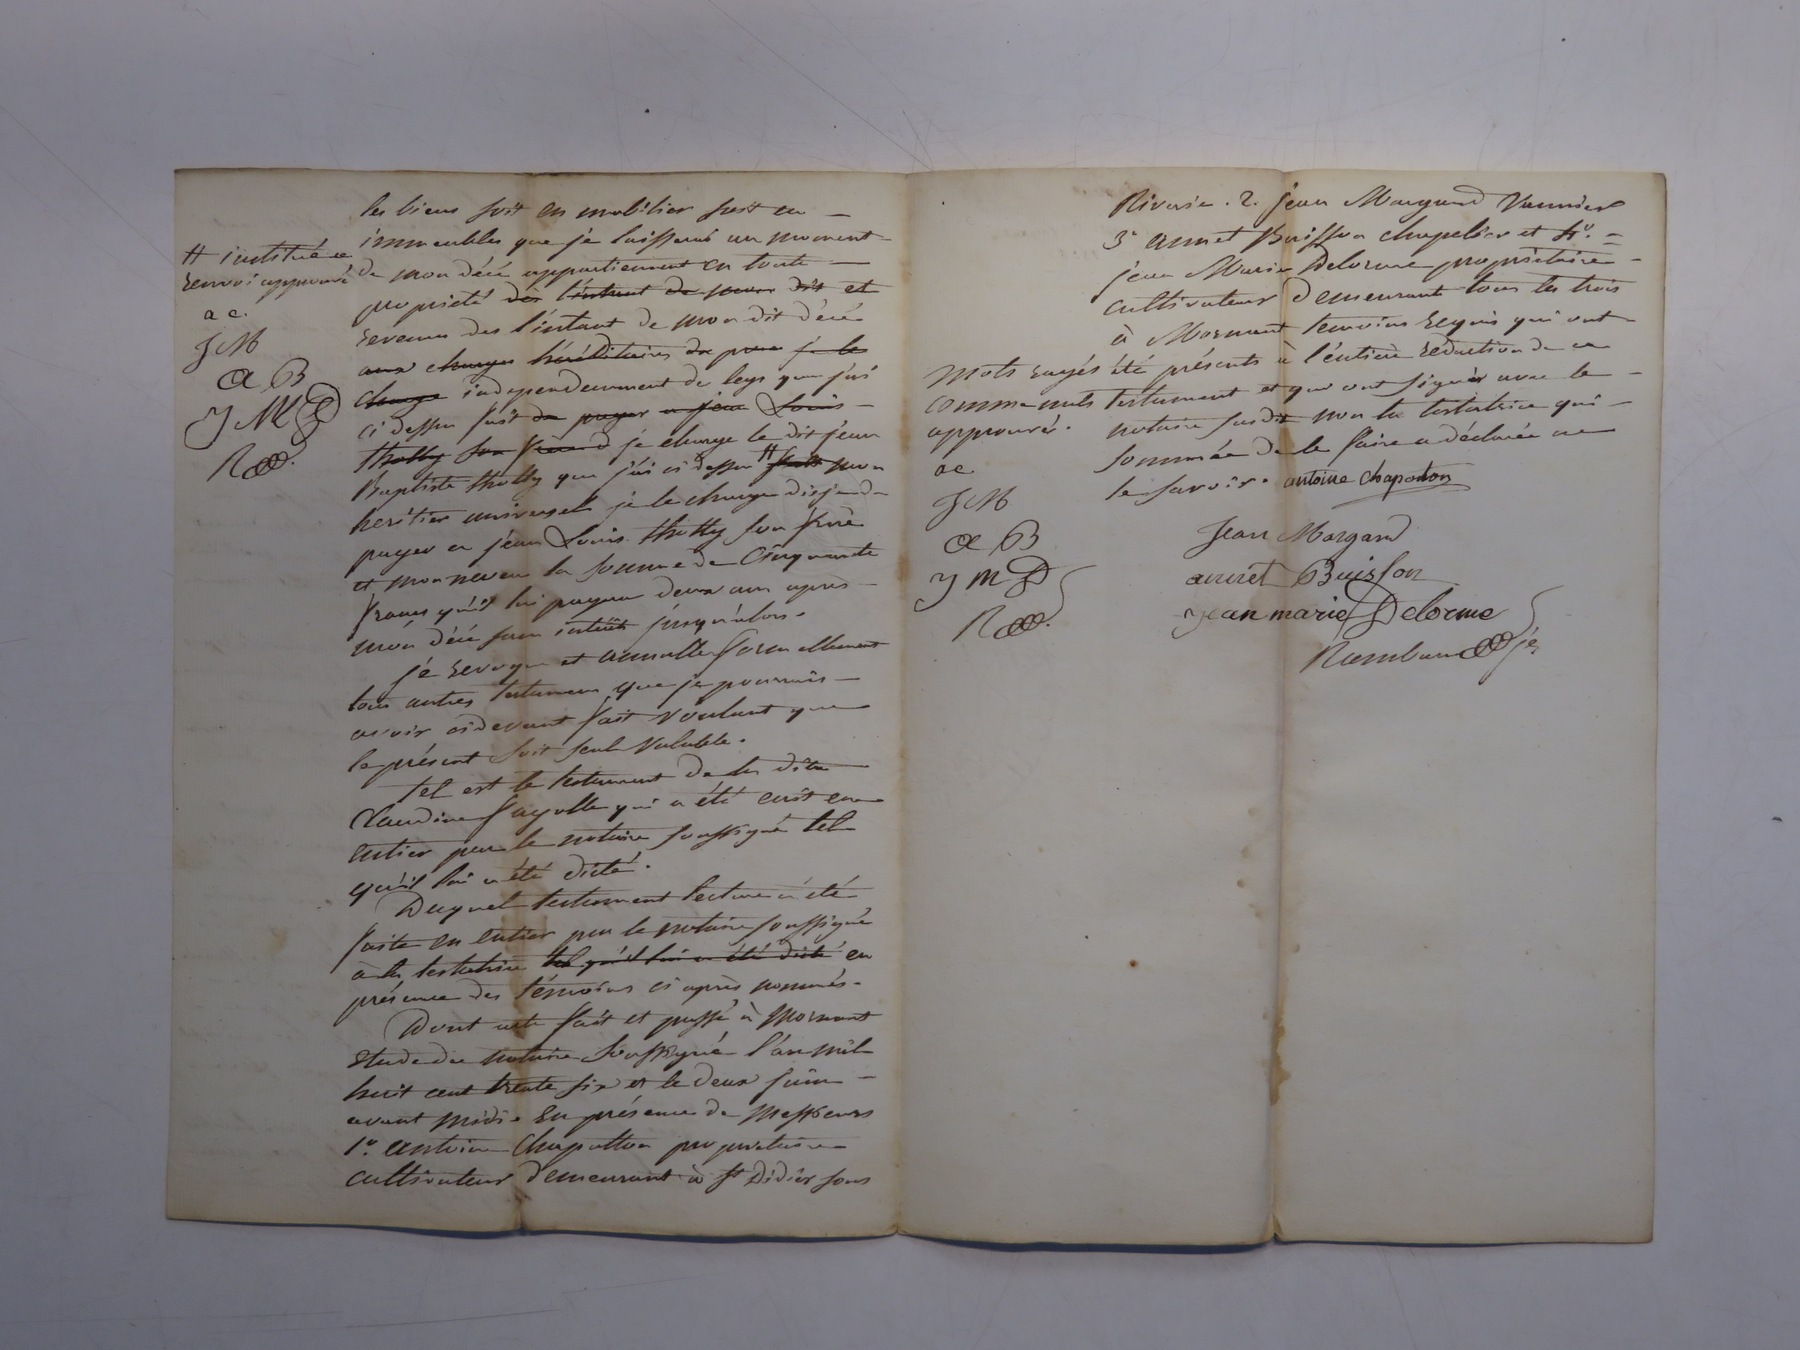 les biens soit en mobilier soit en
immeubles que je laisserai au moment
de mon décé appartiennent en toute
propriété dès l'instant de mon dit et
revenus des l'instant de mon dit décé
aux charges héréditaires de pour je le
charge independemment du legs que j'ai
ci dessu fait de payer a jean Louis
tholly son frere je charge le dit jean
Baptiste tholly que j'ai ci dessu # fait mon
heritier universel je le charge disje de
payer a jean Louis tholly son frere
et mon neveu la somme de Cinquante
francs qu'il lui payera deux ans après
mon décé sans intérêt jusqu'alors.
je revoque et annulle formellement
tous autres testamens que je pourrais
avoir cidevant fait voulant que
le présent soit seul valable.
Tel est le testament de la dite
Claudine fayolle qui a été ecrit en
entier par le notaire soussigné tel
qu'il lui a été dicté.
Duquel testament lecture a été
faite en entier par le notaire soussigné
à la testatrice tel qu'il lui a été dicté en
présence des témoins ci après nommés.
Dont acte fait et passé à Mornant
étude du notaire soussigné l'an mil
huit cent trente six et le deux juin
avant midi. En présence de Messieurs
1º. antoine Chapotton propriétaire
cultivateur demeurant à St Didier sous
# institué
renvoi approuvé
a c.
J M
a B
J M D
R
Riverie. 2. jean Margand Vannier
3º annet Buisson chapelier et 4º.
jean Marie Delorme propriétaire
cultivateur demeurant tous les trois
à Mornant temoins requis qui ont
été présents à l'entière rédaction de ce
testament et qui ont signés avec le
notaire susdit non la testatrice qui
sommée de le faire a déclarée ne
le savoir.
mots rayés
comme nuls
approuvés.
a c
J M
a B
J M D
R
antoine chapotton
Jean Margand
annet Buisson
jean marie Delorme
Rambaud